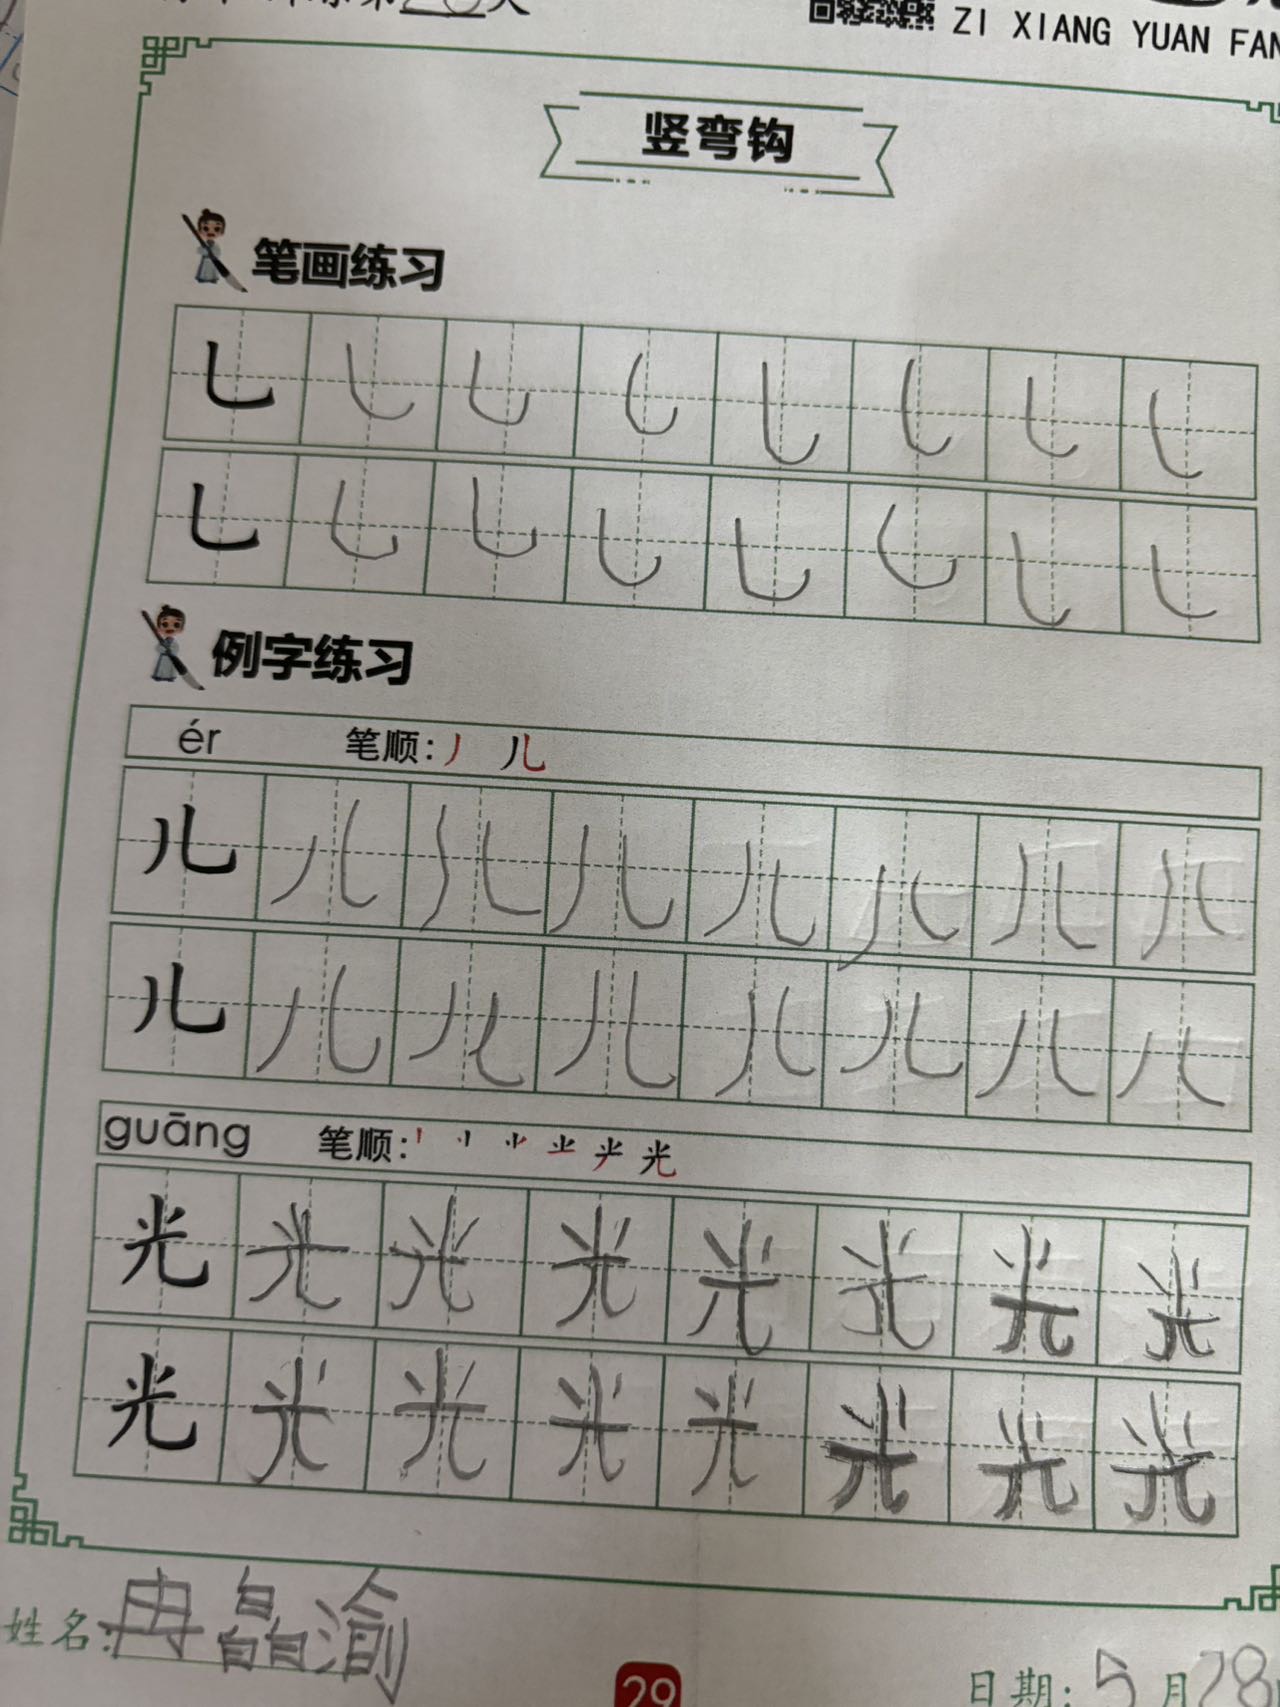 ZI XIANG YUAN FAN
竖弯钩
笔画练习
例字练习
ér 笔顺: 丿 儿
儿 儿 儿 儿 儿 儿 儿 儿
儿 儿 儿 儿 儿 儿 儿 儿
guāng 笔顺: 光
光 光 光 光 光 光 光 光
光 光 光 光 光 光 光 光
姓名: 冉晶渝
日期: 5月28
29